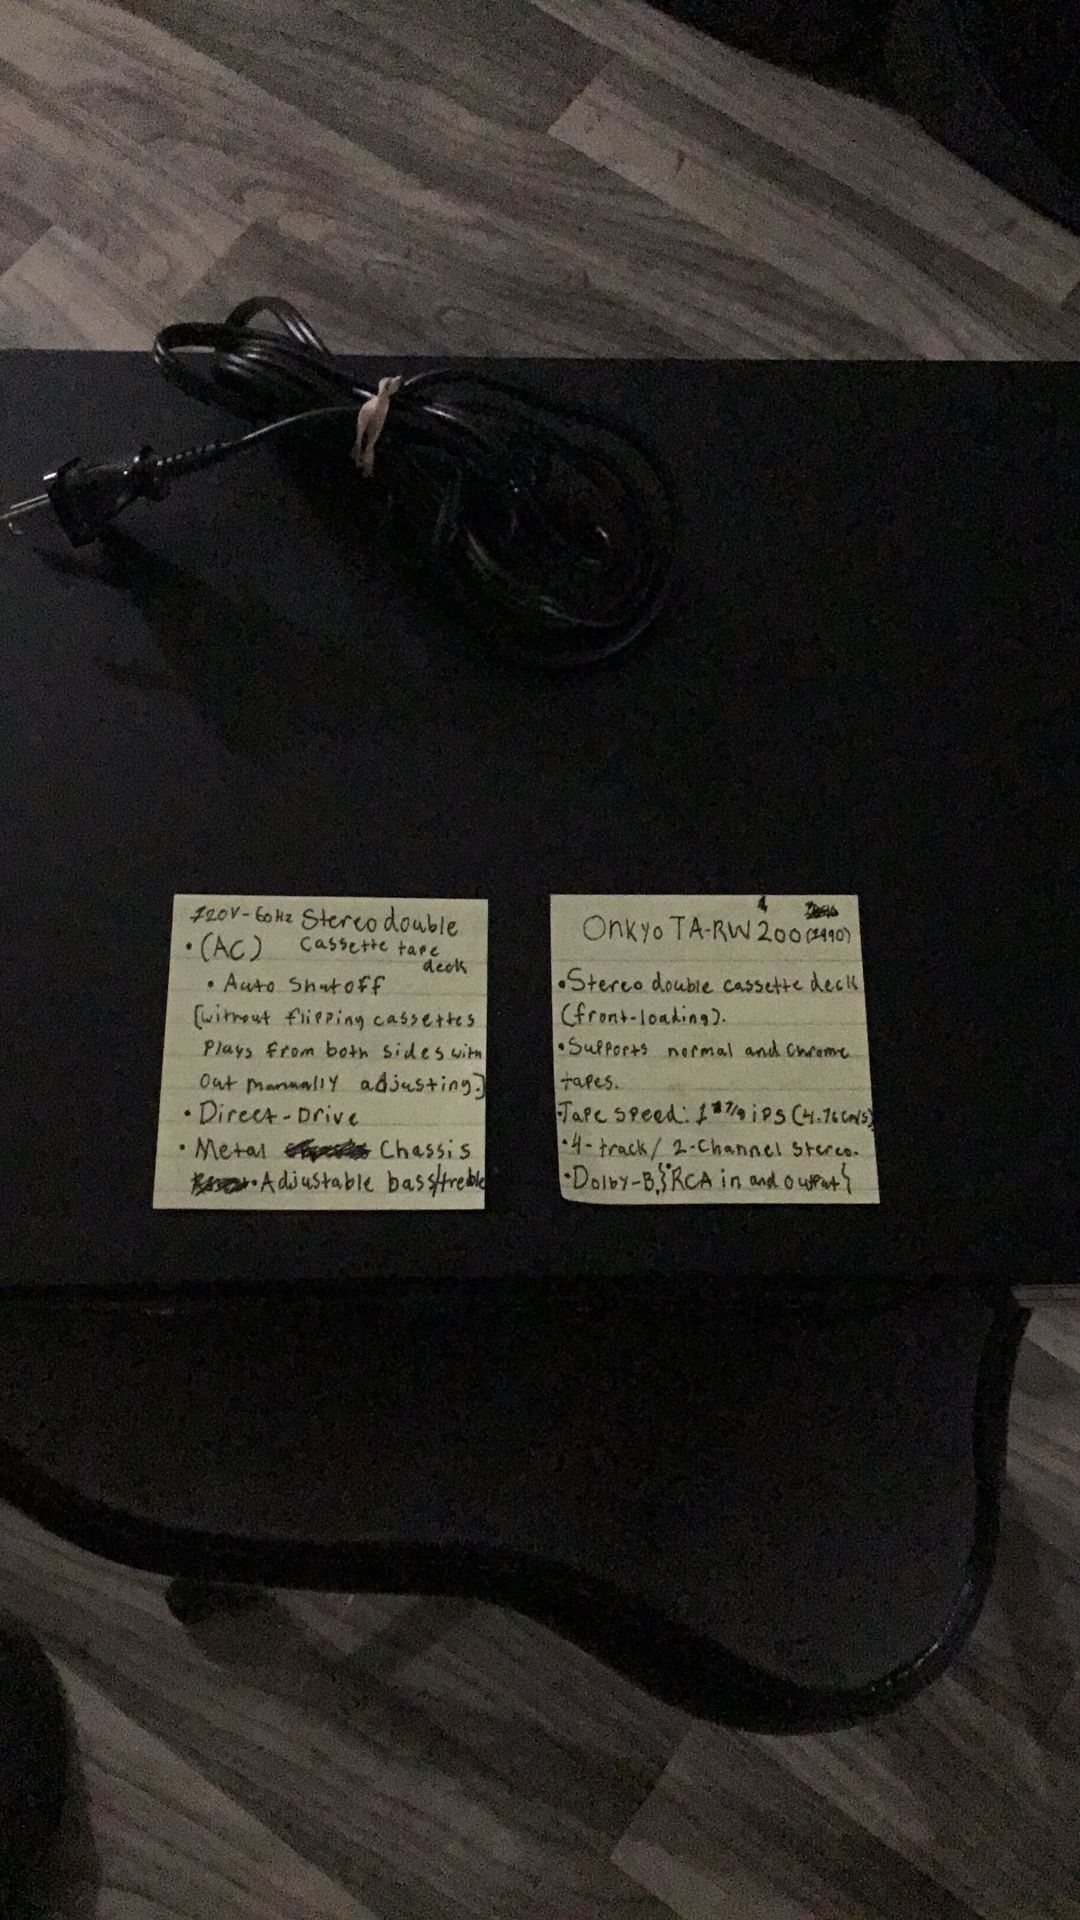 120V-60Hz Stereo double
• (AC) Cassette tape
deck
• Auto Shutoff
[without flipping cassettes
Plays from both sides with
out manually adjusting.]
• Direct-Drive
• Metal Chassis
• Adjustable bass/treble
Onkyo TA-RW 200 (1990)
• Stereo double cassette deck
(front-loading).
• Supports normal and chrome
tapes.
• Tape speed: 1 7/8 ips (4.76cm/s)
• 4-track / 2-Channel Stereo.
• Dolby-B, {RCA in and output}